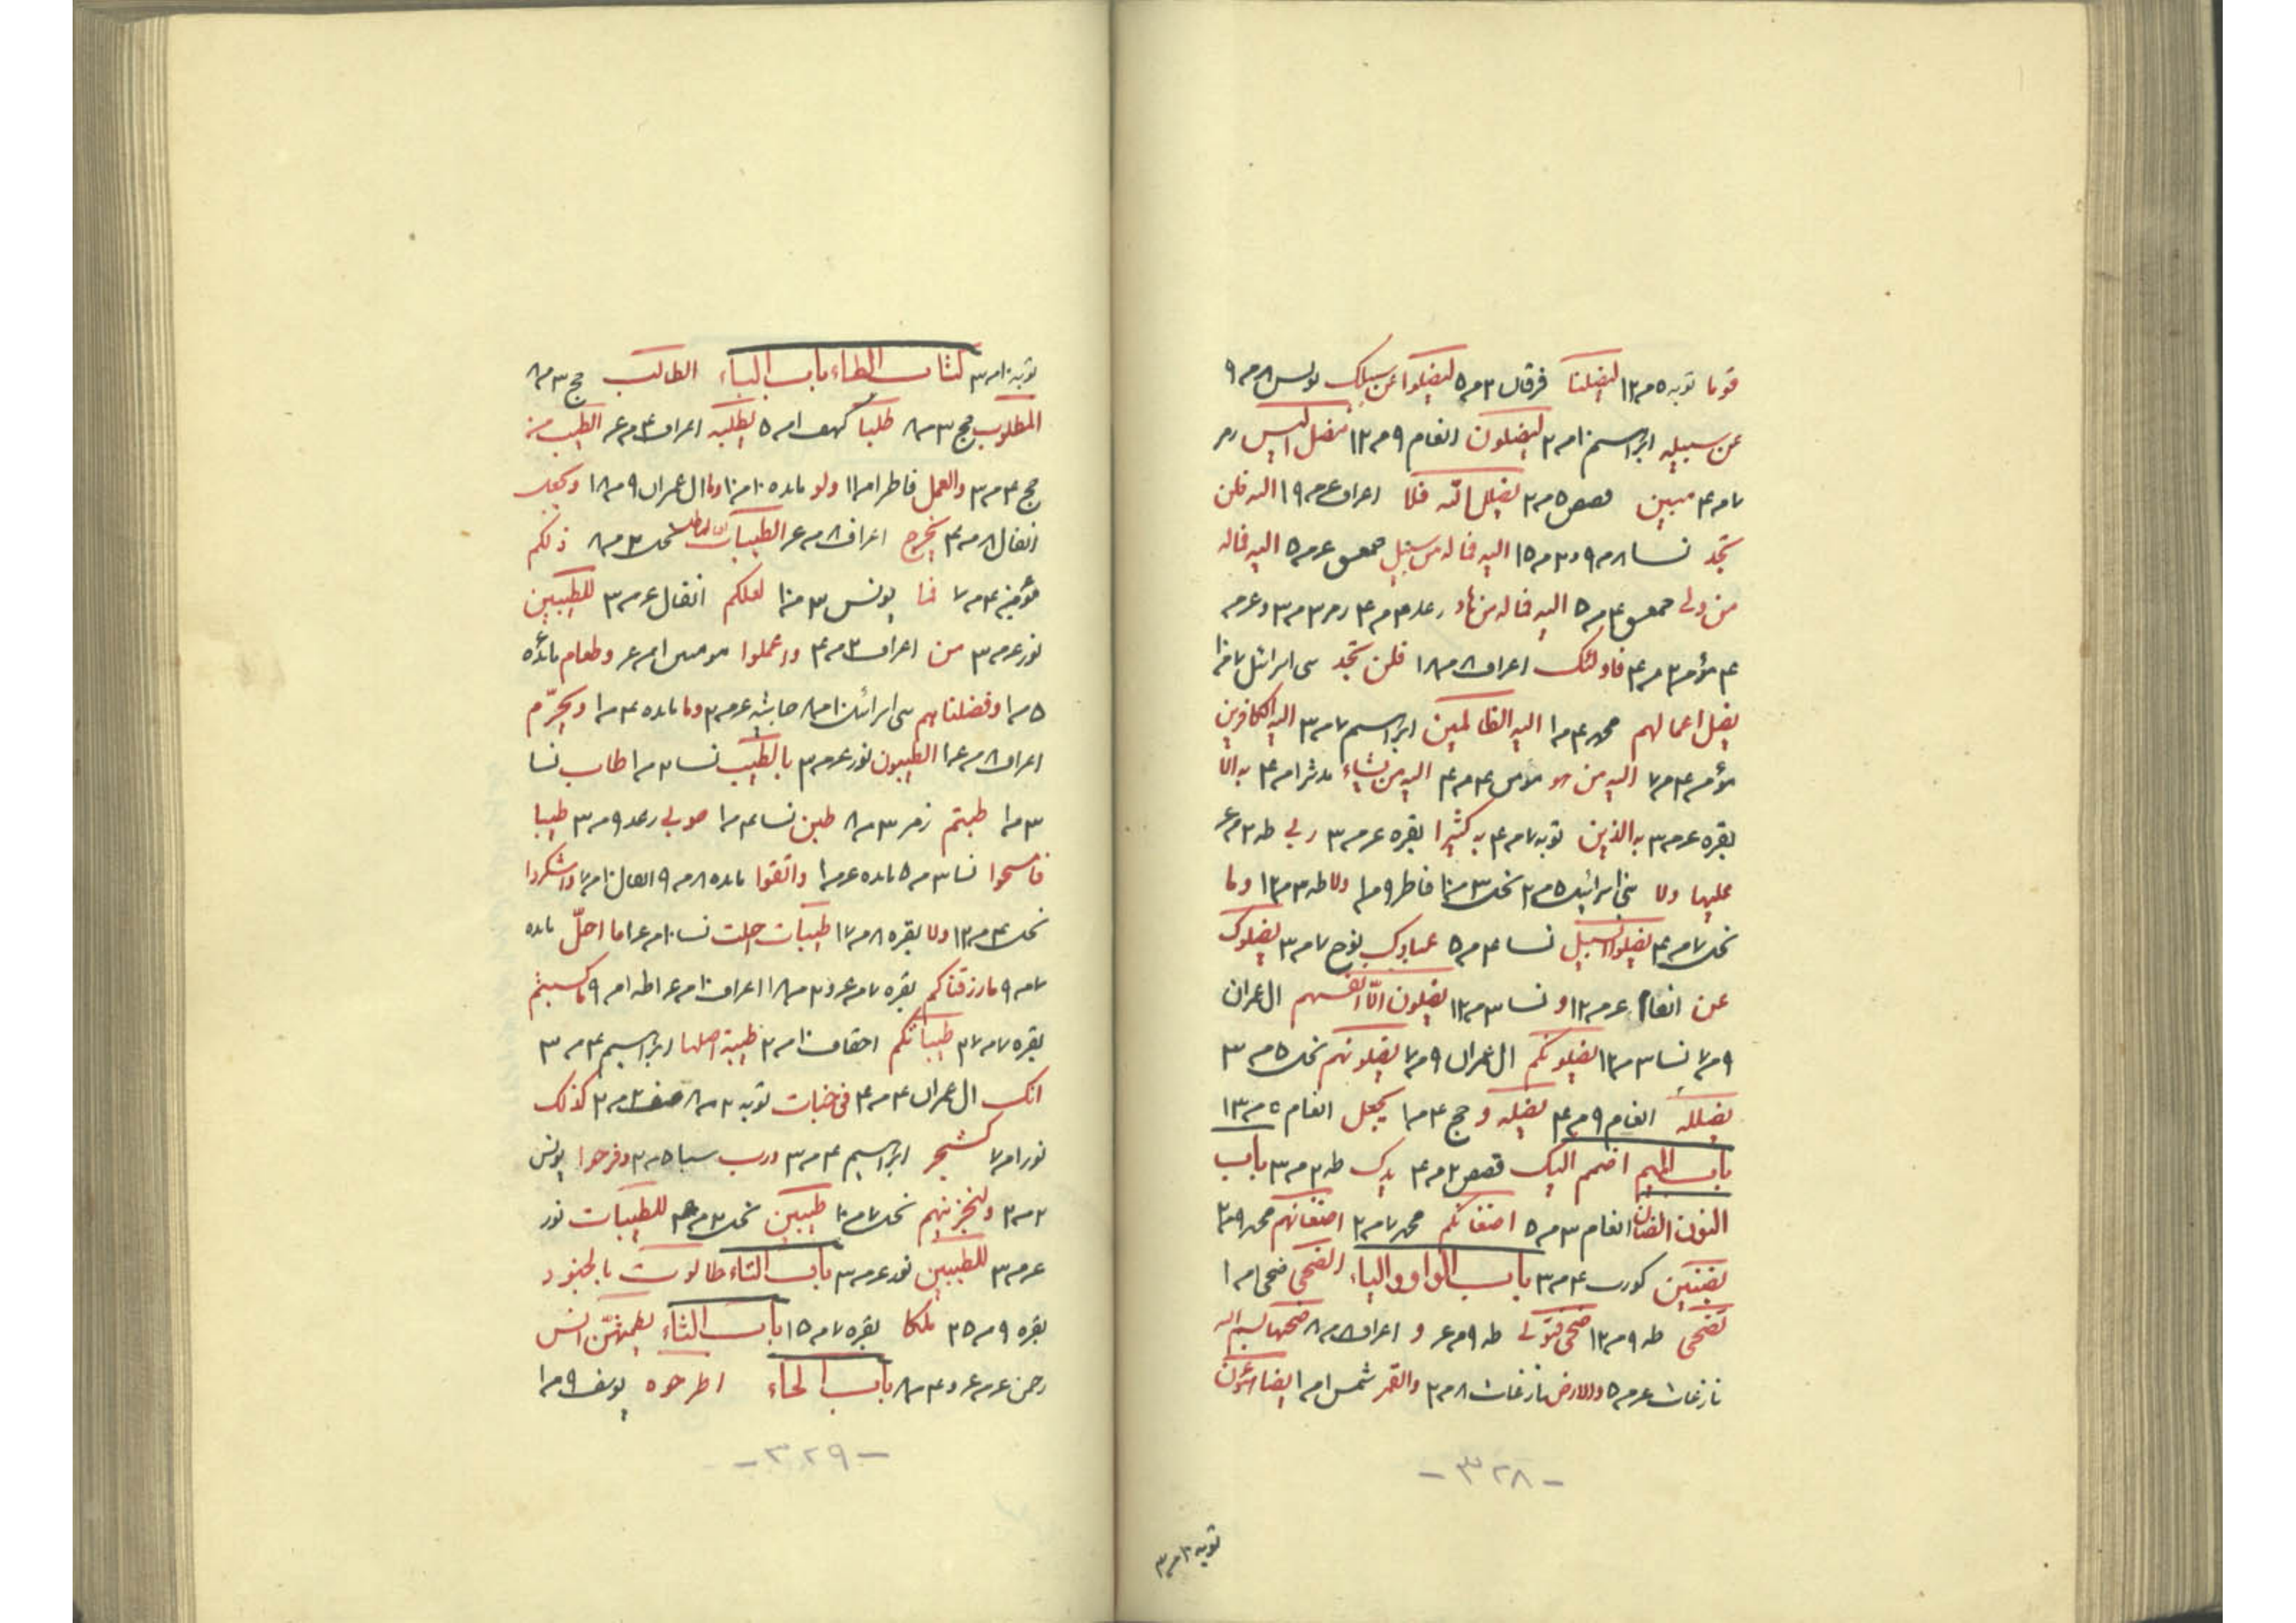 قوما توبه ٥ مر ١٢ ليضلنا فرقان ٣ مر ٥ ليضلوا عن سبيلك يونس ٨ مر ٩
عن سبيله ابراهيم ١٠ مر ٢ ليضلون انعام ٩ مر ١٢ اليس زمر
٧ مر ٤ مبين قصص ٥ مر ٢ يضلل الله فلا اعراف ع مر ١٩ الله فلن
تجد نسا ٨ مر ٩ و ٣ مر ١٥ الله فما له من سبيل حمعسق ع مر ٥ الله فما له
من ولى حمعسق ٤ مر ٥ الله فما له من هاد رعد ٣ مر ٤ زمر ٣ مر ٣ و ع مر
٤ مؤمن ٣ مر ٤ فاولئك اعراف ٨ مر ١٨ فلن تجد بنى اسرائيل ٧ مر ١٠
يضل اعمالهم محمد ٤ مر ١ الله الظالمين ابراهيم ٧ مر ٣ الله الكافرين
مؤمن ٤ مر ٧ الله من هو مؤمن ٤ مر ٤ الله من يشاء مدثر ١ مر ٤ به الا
بقره ع مر ٣ به الذين توبه ٧ مر ٤ به كثيرا بقره ع مر ٣ ربى طه ٢ مر ع
عليها ولا بنى اسرائيل ٥ مر ٢ نحل ٣ مر ١٠ فاطر ٩ مر ١ ولا طه ٣ مر ١٢ وما
نحل ٧ مر ٤ يضلوا السبيل نسا ٤ مر ٥ عبادك نوح ٧ مر ٣ يضلوك
عن انعام ع مر ١٢ و نسا ٣ مر ١٢ يضلون الا انفسهم ال عمران
٩ مر ٧ نسا ٣ مر ١٢ يضلونكم ال عمران ٩ مر ٧ يضلونهم نحل ٥ مر ٣
يضلله انعام ٩ مر ٤ يضله و حج ٤ مر ١ يجعل انعام ٥ مر ١٣
باب الميم اضمم اليك قصص ٢ مر ٤ يدك طه ٢ مر ٣ باب
النون الضان انعام ٣ مر ٥ اضغانكم محمد ٧ مر ٢ اضغانهم محمد ٩ مر ٢
بضنين كورت ٤ مر ٣ باب الواو والياء الضحى ضحى ١ مر ١
تضحى طه ٩ مر ١٢ ضحى فتولى طه ٩ مر ع و اعراف ٨ مر ٨ ضحيها
نازعات ع مر ٥ والارض نازعات ٨ مر ٢ والقمر شمس ١ مر ١ يضاهئون
-٣٢٨-
توبه ١٠ مر ٣
توبه ١٠ مر ٣ كتاب الطاء باب الباء الطالب حج ٣ مر ٨
المطلوب حج ٣ مر ٨ طلبا كهف ١ مر ٥ يطلبه اعراف ٤ مر ع الطيب من
حج ٤ مر ٣ والعمل فاطر ١ مر ١١ ولو مائده ١٠ مر ١٠ وما ال عمران ٩ مر ١٨ ويجعل
انفال ٨ مر ٤ يخرج اعراف ٨ مر ع الطيبات نحل ٣ مر ٨ ذلكم
مؤمن ٤ مر ٧ فما يونس ٣ مر ١٠ لعلكم انفال ع مر ٣ للطيبين
نور ع مر ٣ من اعراف ٣ مر ٤ واعملوا مومنين ١ مر ع وطعام مائده
٥ مر ١ وفضلناهم بنى اسرائيل ١٠ مر ٨ جاثيه ع مر ٢ وما مائده ٤ مر ١ ويحرم
اعراف ٨ مر ع١ الطيبون نور ع مر ٣ بالطيب نسا ٢ مر ١ طاب نسا
٣ مر ١ طبتم زمر ٣ مر ٨ طبن نسا ٤ مر ١ طوبى رعد ٩ مر ٣ طيبا
فامسحوا نسا ٣ مر ٥ مائده ع مر ١ واتقوا مائده ٨ مر ٩ انفال ١٠ مر ٧ واشكروا
نحل ٤ مر ١٢ ولا بقره ٨ مر ١٧ طيبات احلت نسا ١٠ مر ع١ ما احل مائده
٧ مر ٩ ما رزقناكم بقره ٧ مر ع و ٢ مر ١٨ اعراف ١٠ مر ع١ طه ١ مر ٩ ما كسبتم
بقره ٧ مر ٢٧ طيباتكم احقاف ١٠ مر ٢ طيبة اصلها ابراهيم ٤ مر ٣
انك ال عمران ٤ مر ٤ فى جنات توبه ٢ مر ٨ صف ٣ مر ٢ كذلك
نور ١ مر ٧ كشجرة ابراهيم ٤ مر ٣ ورب سبا ٥ مر ٢ وفرحوا يونس
٢ مر ٢ ولنجزينهم نحل ٧ مر ١٠ طيبين نحل ٢ مر ٤ للطيبات نور
ع مر ٣ للطيبين نور ع مر ٣ باب التاء طالوت بالجنود
بقره ٩ مر ٢٥ ملكا بقره ٧ مر ١٥ باب الثاء يطمثهن انس
رحمن ع مر ع و ٤ مر ٨ باب الحاء اطرحوه يوسف ٩ مر ١
-٣٢٩-